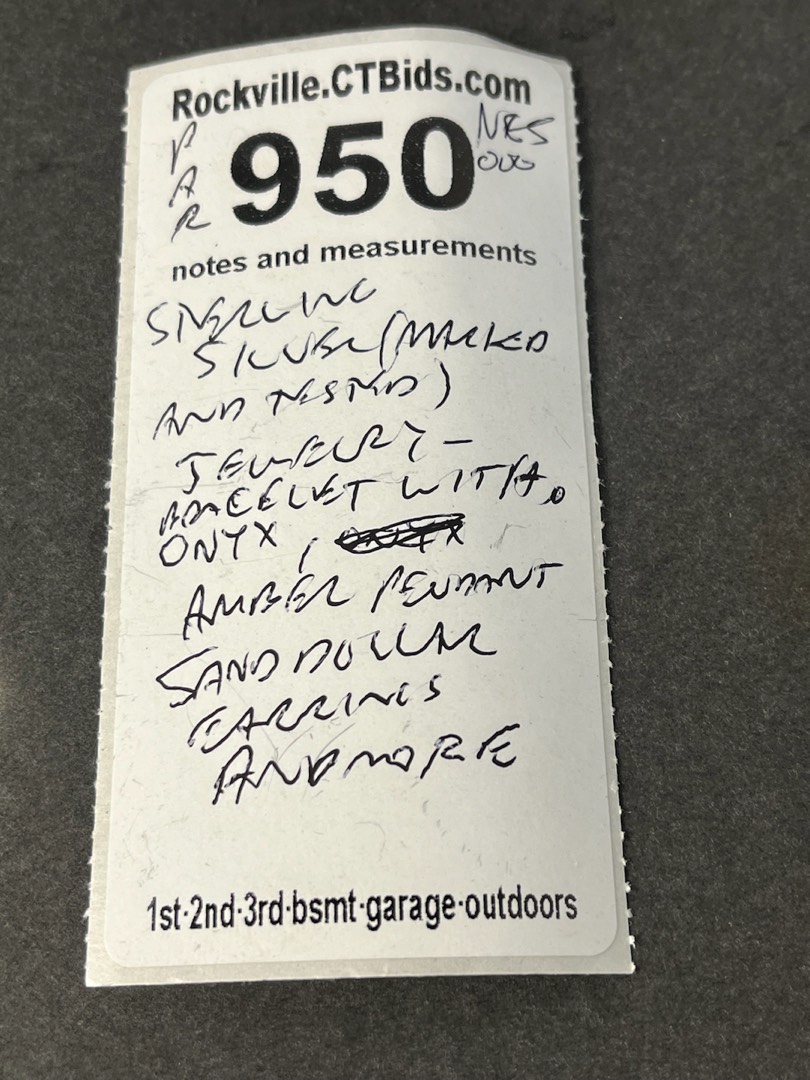 Rockville.CTBids.com
PAR
950
notes and measurements
STERLING
SILVER (MARKED
AND TESTED)
JEWELRY -
BRACELET WITH
ONYX,
AMBER PENDANT
SAND DOLLAR
EARRINGS
AND MORE
1st·2nd·3rd·bsmt·garage·outdoors